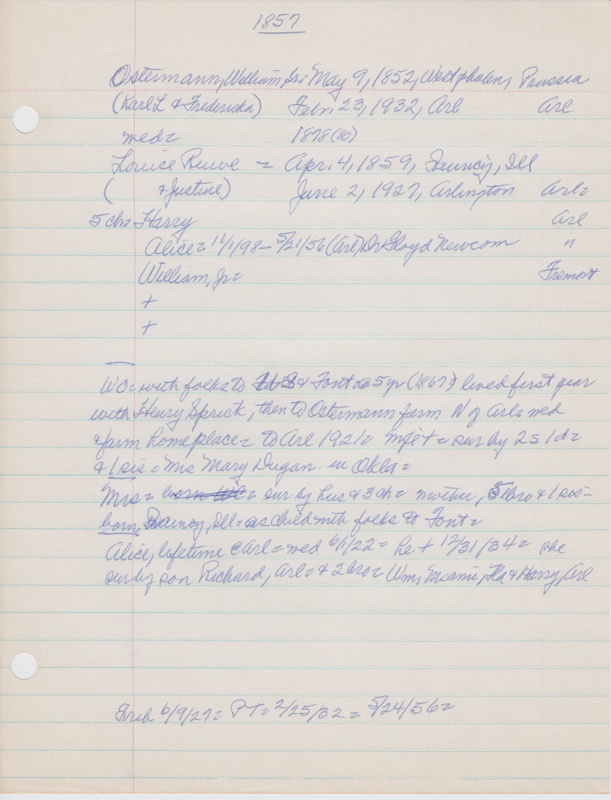 1857
Ostermann, William, Sr= May 9, 1852, Westphalen, Prussia
(Karl L & Fredericka) Feb. 23, 1932, Arl Arl
med= 1878(80)
Louise Reuve = Apr. 4, 1859, Quincy, Ill
( & Justine) June 2, 1927, Arlington Arl=
5 chr= Harry Arl
Alice= 11/1/98- 5/21/56 (Arl) Dr Floyd Newcom "
William, Jr= Fremont
+
+
WO= with folks to & Font @ 5 yr (1867) lived first year
with Henry Sprick, then to Ostermann farm N of Arl= med
& farm home place= to Arl 1921= = sur by 2s 1d=
& 1 sis= Mrs Mary Dugan in Okla=
Mrs= = sur by hus & 3 ch= mother, 5 bro & 1 sis=
born Quincy, Ill= as child with folks to Font=
Alice, lifetime c Arl= med 6/1/22= he + 12/31/34= she
sur by son Richard, Arl= & 2 bro= Wm, Miami, Fla & Harry, Arl
6/9/27= PT= 2/25/32= 5/24/56=